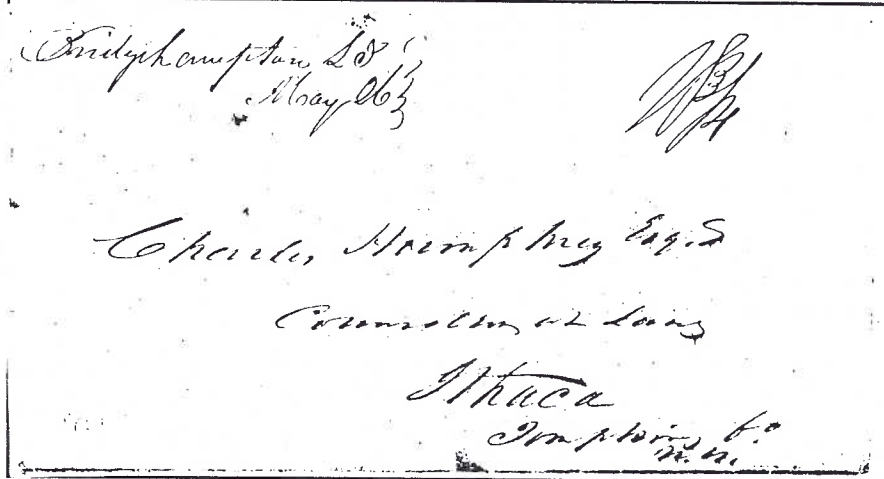 Bridgehampton L I
May 26
Charles Humphrey Esq.
Counsellor at Law
Ithaca
Tompkins Co
N.Y.